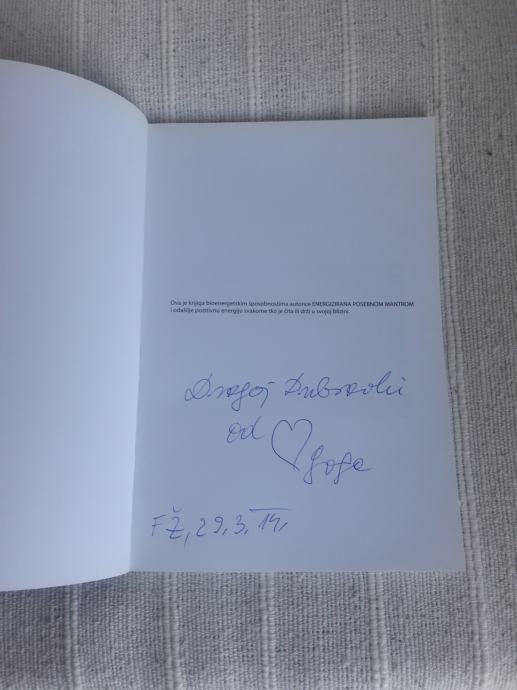 Ova je knjiga bioenergetskim sposobnostima autorice ENERGIZIRANA POSEBNOM MANTROM
i odašilje pozitivnu energiju svakome tko je čita ili drži u svojoj blizini.
Dragoj Dubravki
od
Goga
FŽ, 29, 3, 14,